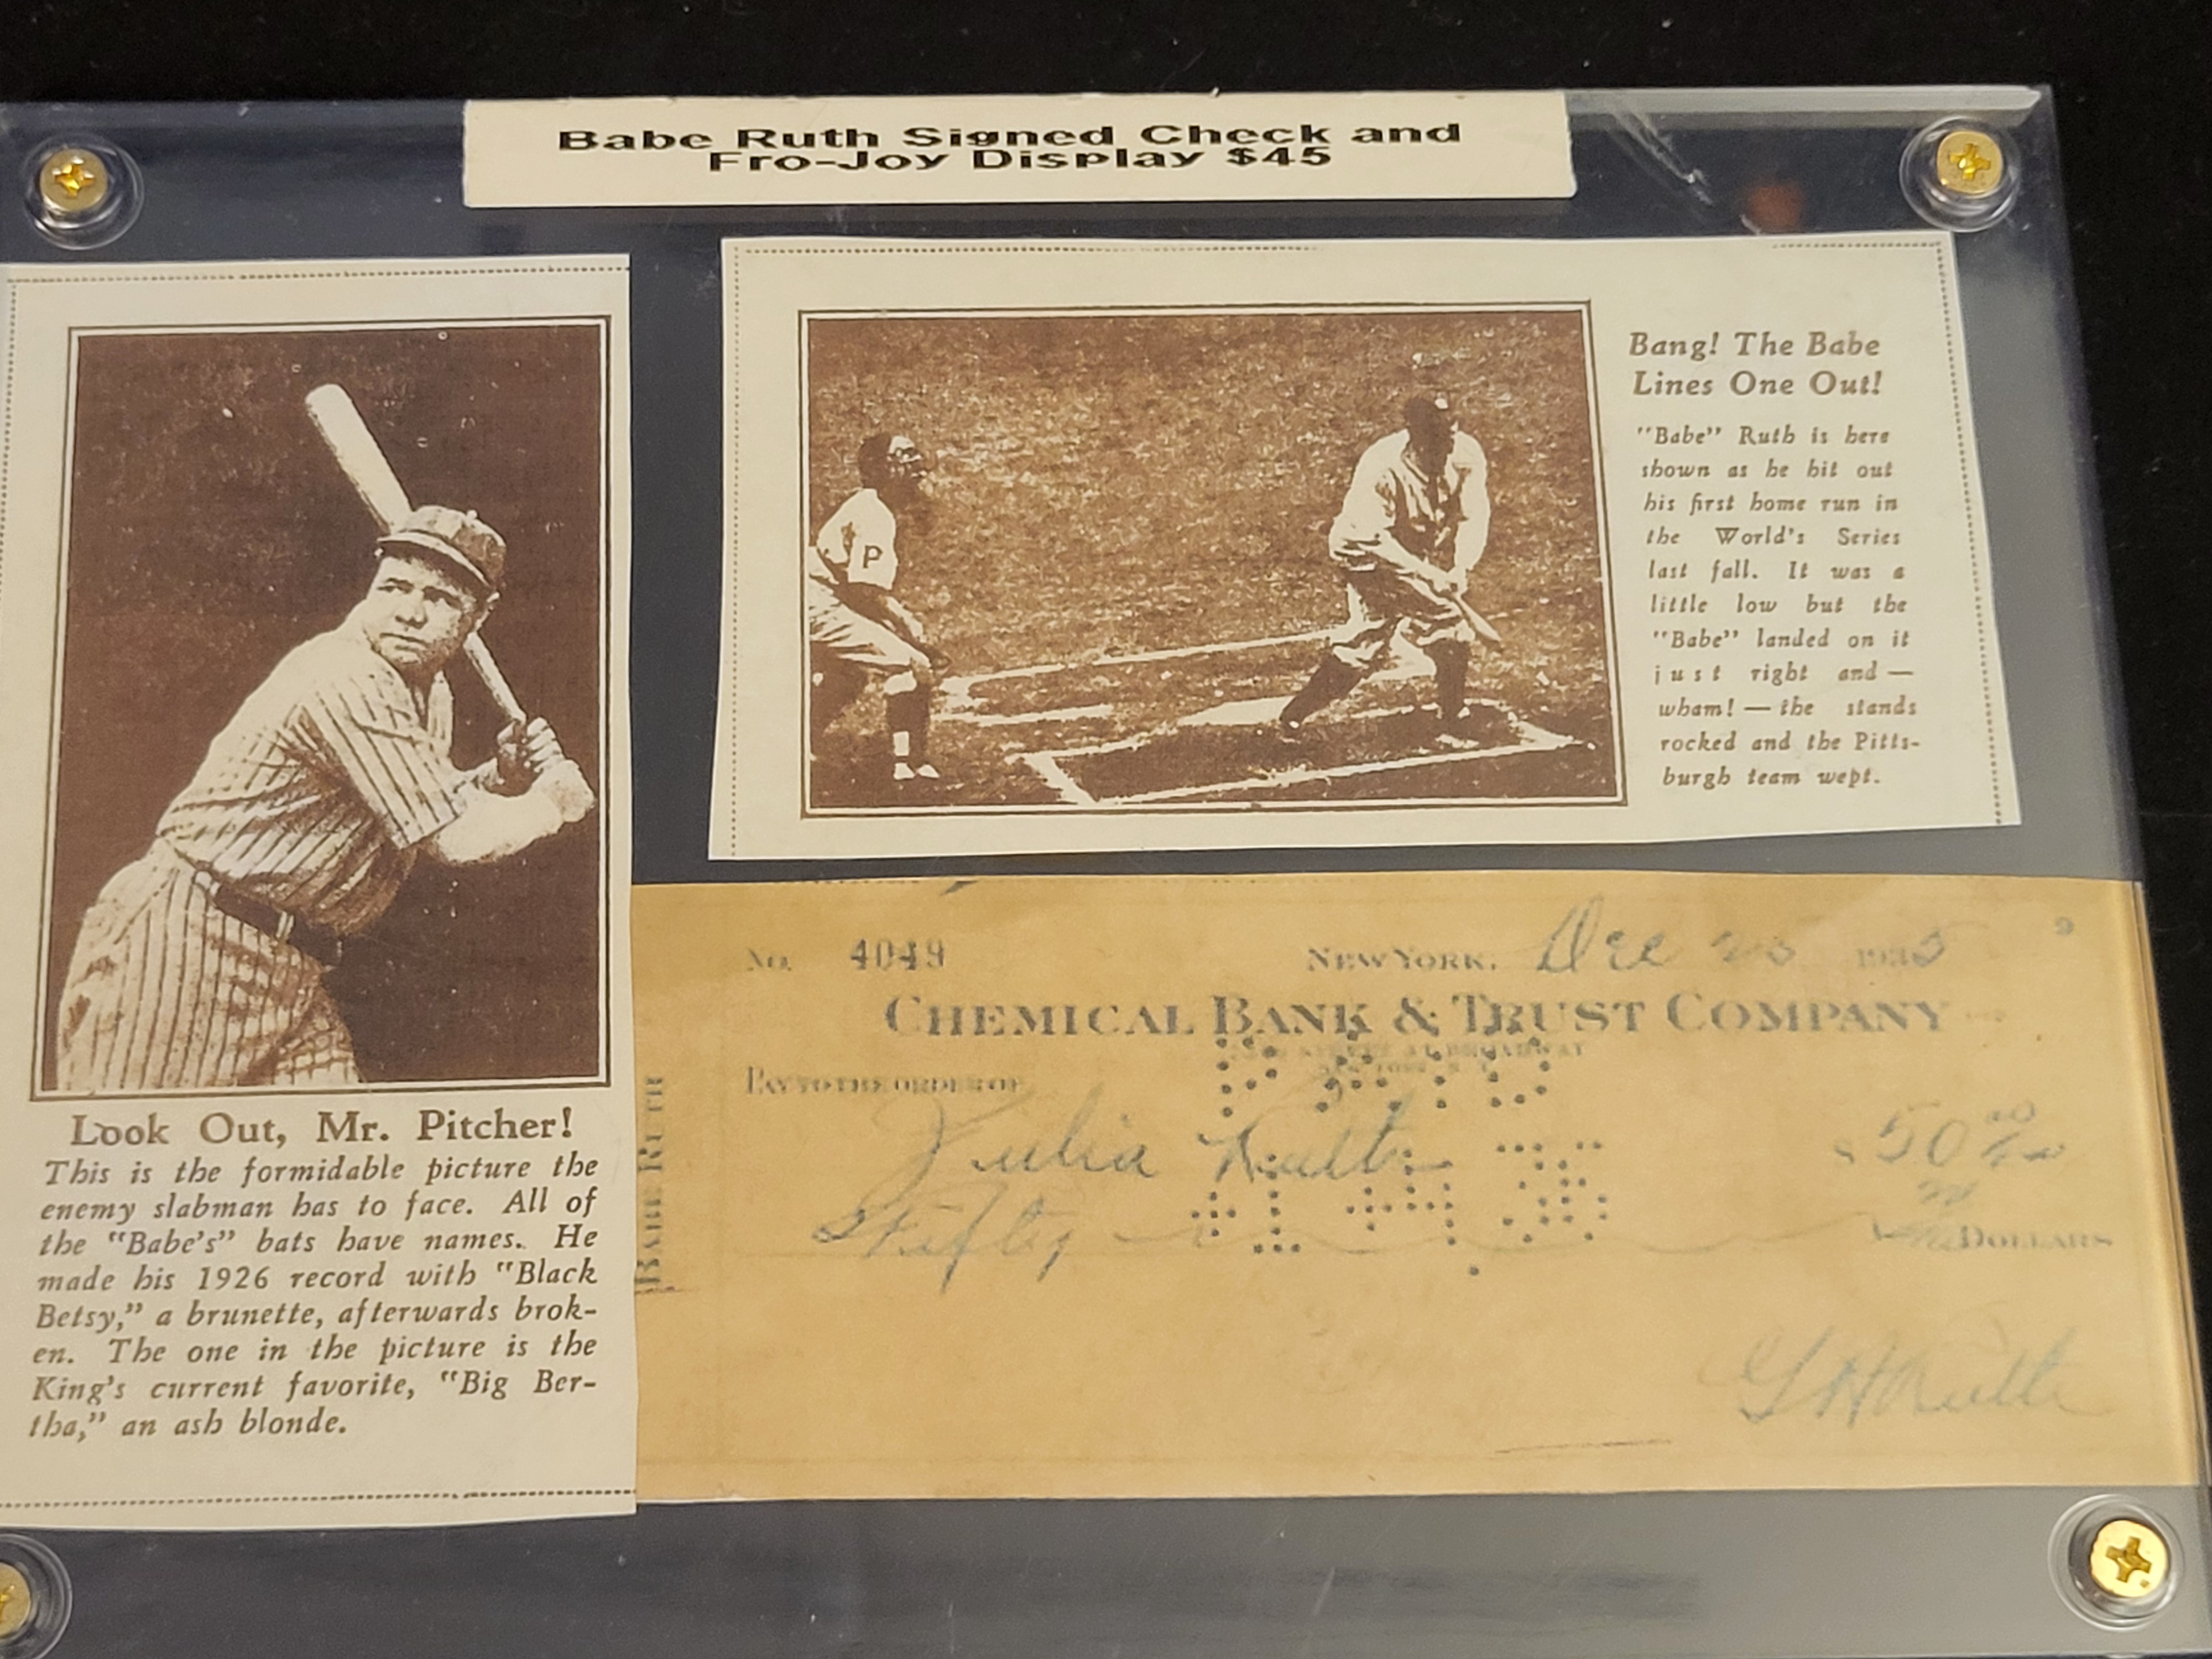 Babe Ruth Signed Check and
Fro-Joy Display $45
Look Out, Mr. Pitcher!
This is the formidable picture the
enemy slabman has to face. All of
the "Babe's" bats have names. He
made his 1926 record with "Black
Betsy," a brunette, afterwards brok-
en. The one in the picture is the
King's current favorite, "Big Ber-
tha," an ash blonde.
P
Bang! The Babe
Lines One Out!
"Babe" Ruth is here
shown as he hit out
his first home run in
the World's Series
last fall. It was a
little low but the
"Babe" landed on it
just right and —
wham! — the stands
rocked and the Pitts-
burgh team wept.
No. 4049 New York, Dec 25 1935
Chemical Bank & Trust Company
AT BROADWAY
Pay to the order of
Julia Ruth $50
Fifty Dollars
Babe Ruth
G H Ruth